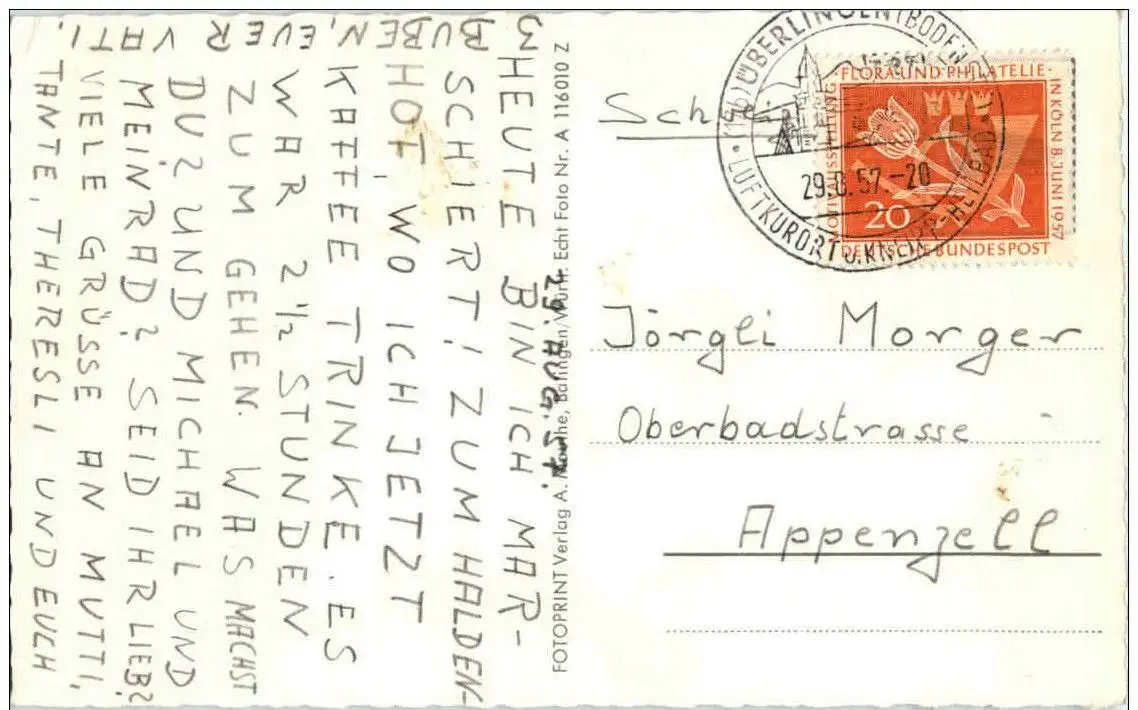 29. AUG. 57.
HEUTE BIN ICH MAR-
SCHIERT! ZUM HALDEN-
HOF, WO ICH JETZT
KAFFEE TRINKE. ES
WAR 2 1/2 STUNDEN
ZUM GEHEN. WAS MACHST
DU? UND MICHAEL UND
MEINRAD? SEID IHR LIEB?
VIELE GRÜSSE AN MUTTI,
TANTE, THERESLI UND EUCH
3 BUBEN, EUER VATI.
FOTOPRINT Verlag A. Balingen/Württ. Echt Foto Nr. A 116010 Z
(17b) ÜBERLINGEN (BODENSEE)
29.8.57.-20
LUFTKURORT U. KNEIPP-HEILBAD
FLORA UND PHILATELIE
IN KÖLN 8. JUNI 1957
20
DEUTSCHE BUNDESPOST
Jörgli Morger
Oberbadstrasse
Appenzell